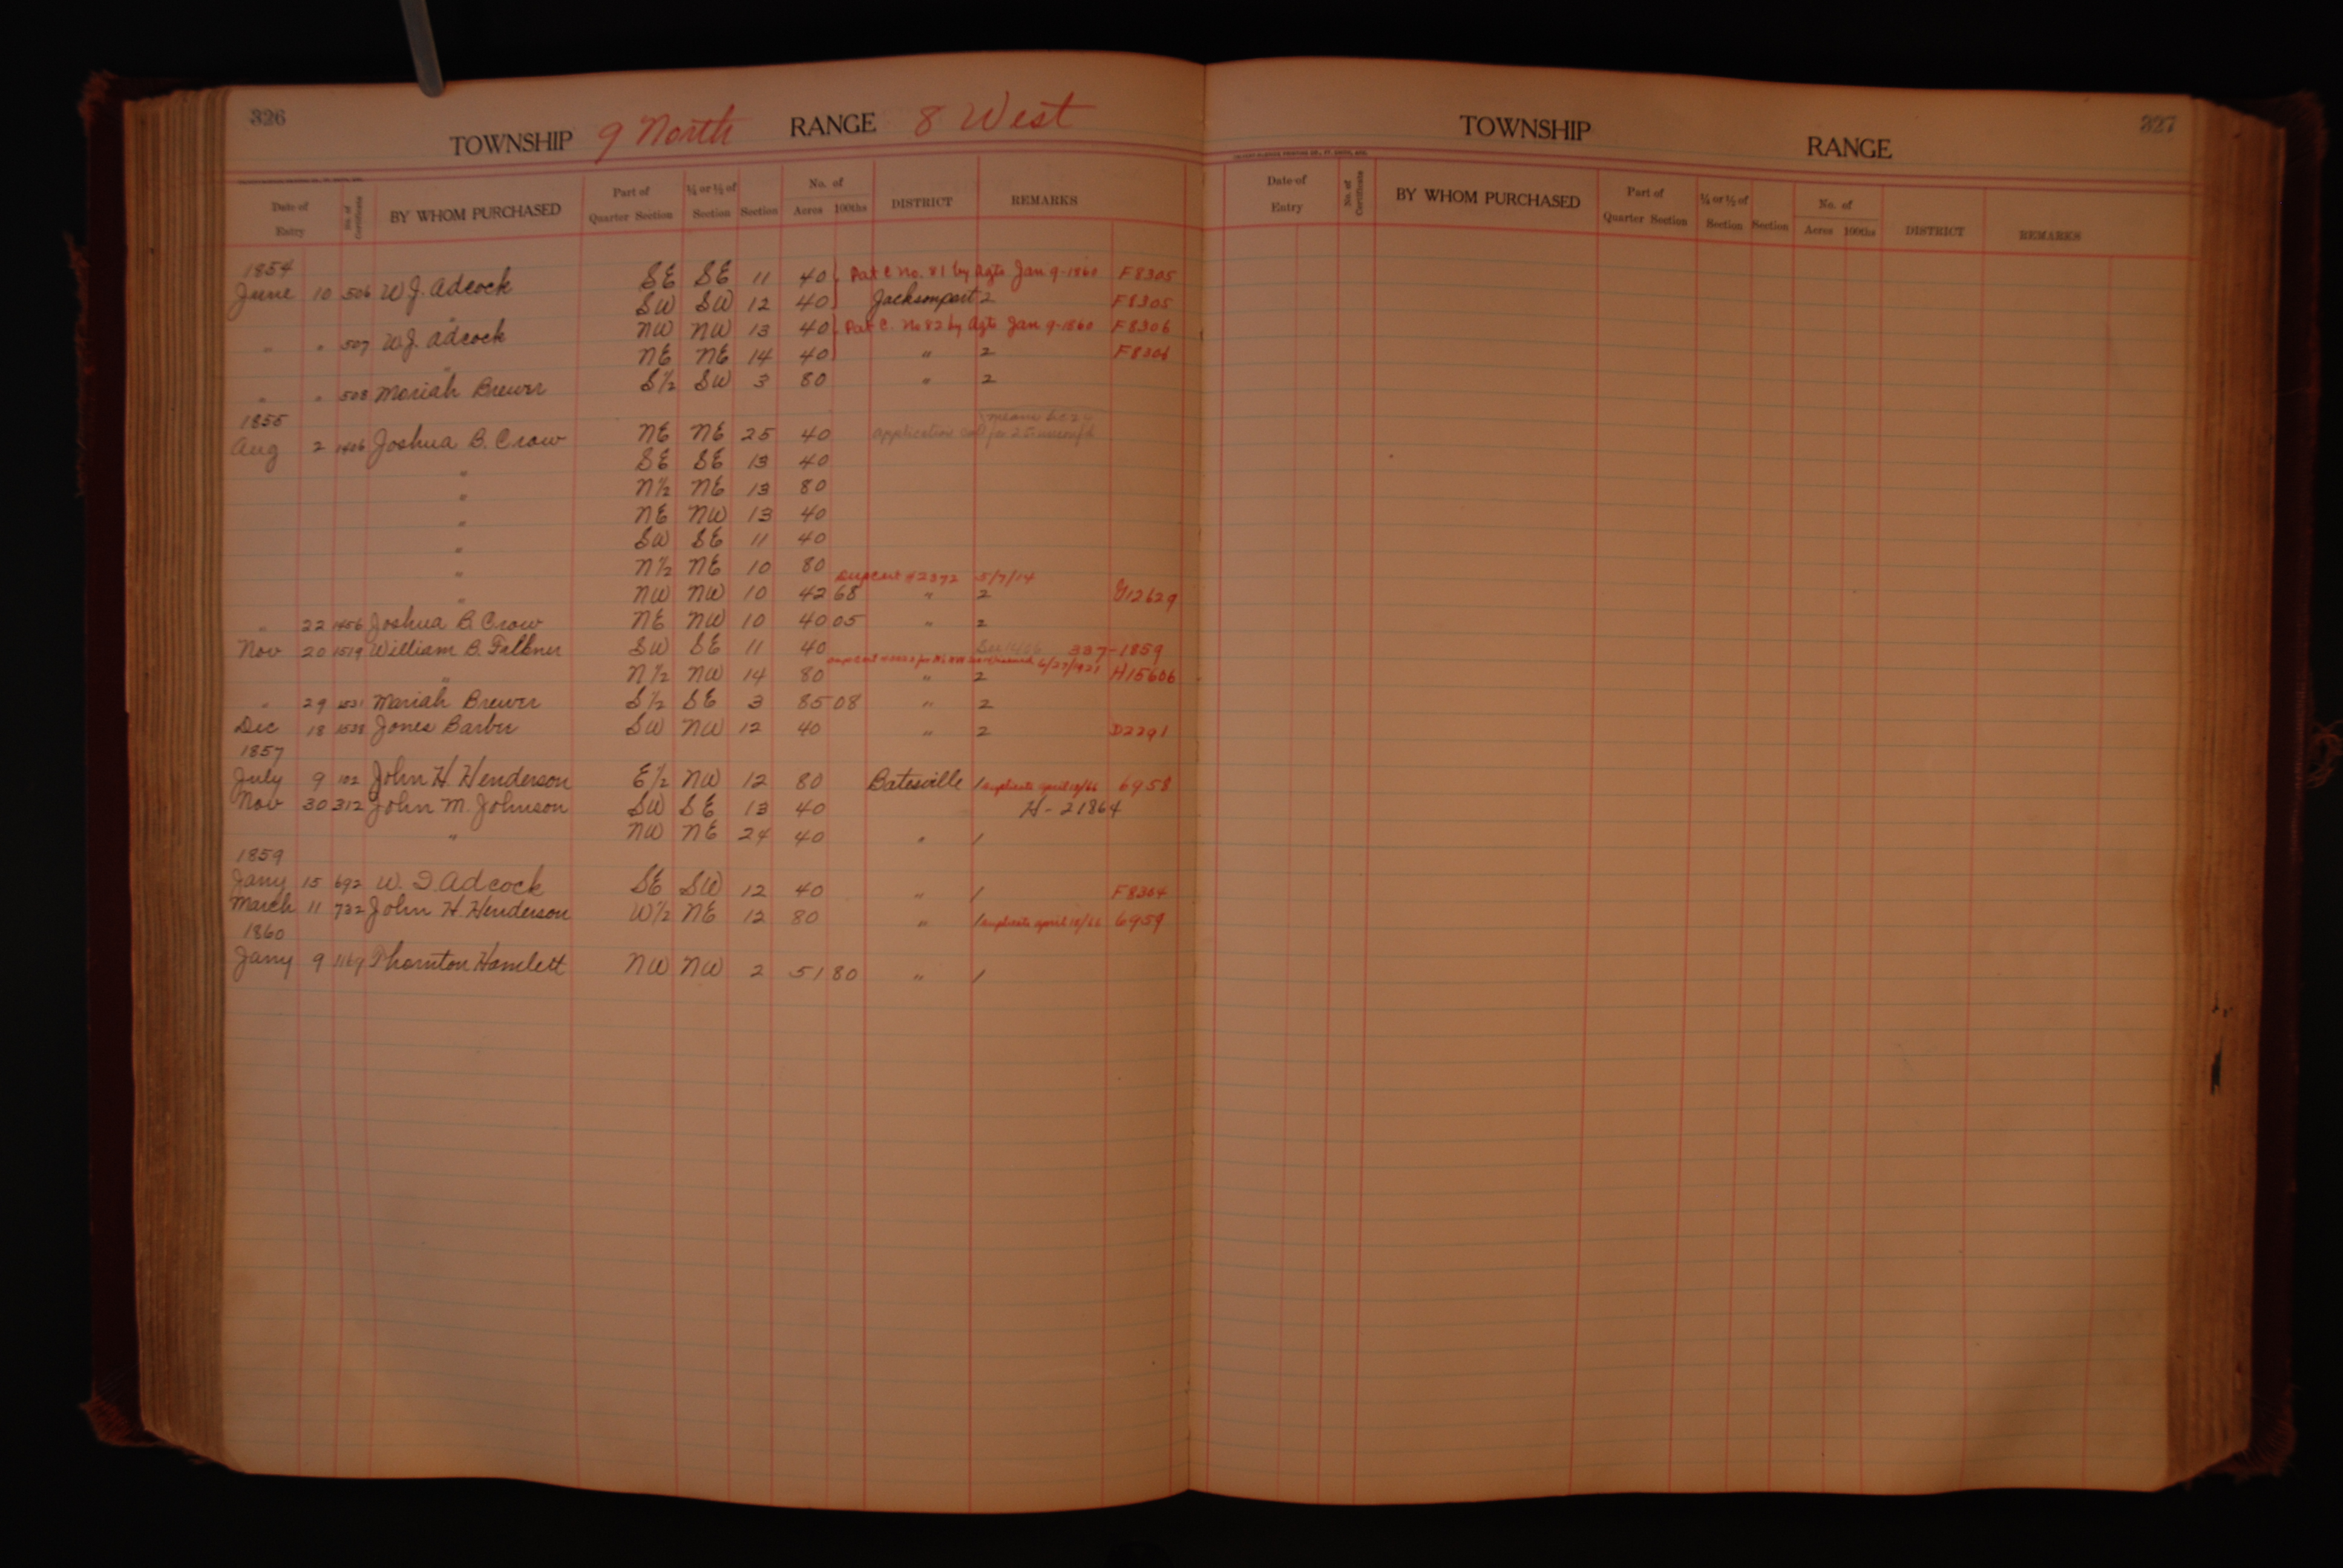 326
TOWNSHIP 9 North RANGE 8 West
Date of Entry No. of Certificate BY WHOM PURCHASED Part of Quarter Section ¼ or ½ of Section Section No. of Acres 100ths DISTRICT REMARKS
1854
June 10 506 W. J. Adcock SE SE 11 40 Pat C No. 81 by Agts Jan 9-1860 F8305
" SW SW 12 40 Jacksonport 2 F8305
" " 507 W. J. Adcock NW NW 13 40 Pat C. No 82 by Agts Jan 9-1860 F8306
" NE NE 14 40 " 2 F8306
" " 508 Moriah Brewer S½ SW 3 80 " 2
1855
Aug 2 1406 Joshua B. Crow NE NE 25 40 application
" SE SE 13 40
" N½ NE 13 80
" NE NW 13 40
" SW SE 11 40
" N½ NE 10 80
Dup cert #2372 5/7/14
" NW NW 10 42 68 " 2 G12629
" 22 1456 Joshua B. Crow NE NW 10 40 05 " 2
Nov 20 1519 William B. Falkner SW SE 11 40 337-1859
6/27/1921
" N½ NW 14 80 " 2 H15606
" 29 1531 Mariah Brewer S½ SE 3 85 08 " 2
Dec 18 1538 Jones Barber SW NW 12 40 " 2 D2291
1857
July 9 102 John H. Henderson E½ NW 12 80 Batesville 1 Duplicate april 18/66 6958
Nov 30 312 John M. Johnson SW SE 13 40 H-21864
" NW NE 24 40 " 1
1859
Jany 15 692 W. I. Adcock SE SW 12 40 " 1 F8364
March 11 722 John H Henderson W½ NE 12 80 " 1 Duplicate april 18/66 6959
1860
Jany 9 1169 Thornton Hamlett NW NW 2 51 80 " 1
327
TOWNSHIP RANGE
Date of Entry No. of Certificate BY WHOM PURCHASED Part of Quarter Section ¼ or ½ of Section Section No. of Acres 100ths DISTRICT REMARKS